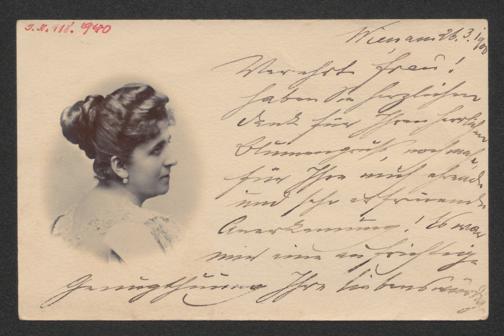 I.N. 118.940
Wien am 26.3.1900
Verehrte Frau!
haben Sie herzlichen
Dank für Ihren herrlichen
Blumengruß, nochmals
für Ihre mich ehrende
und sehr erfreuende
Anerkennung! Es war
mir eine aufrichtige
Genugthuung Ihre liebenswürdige